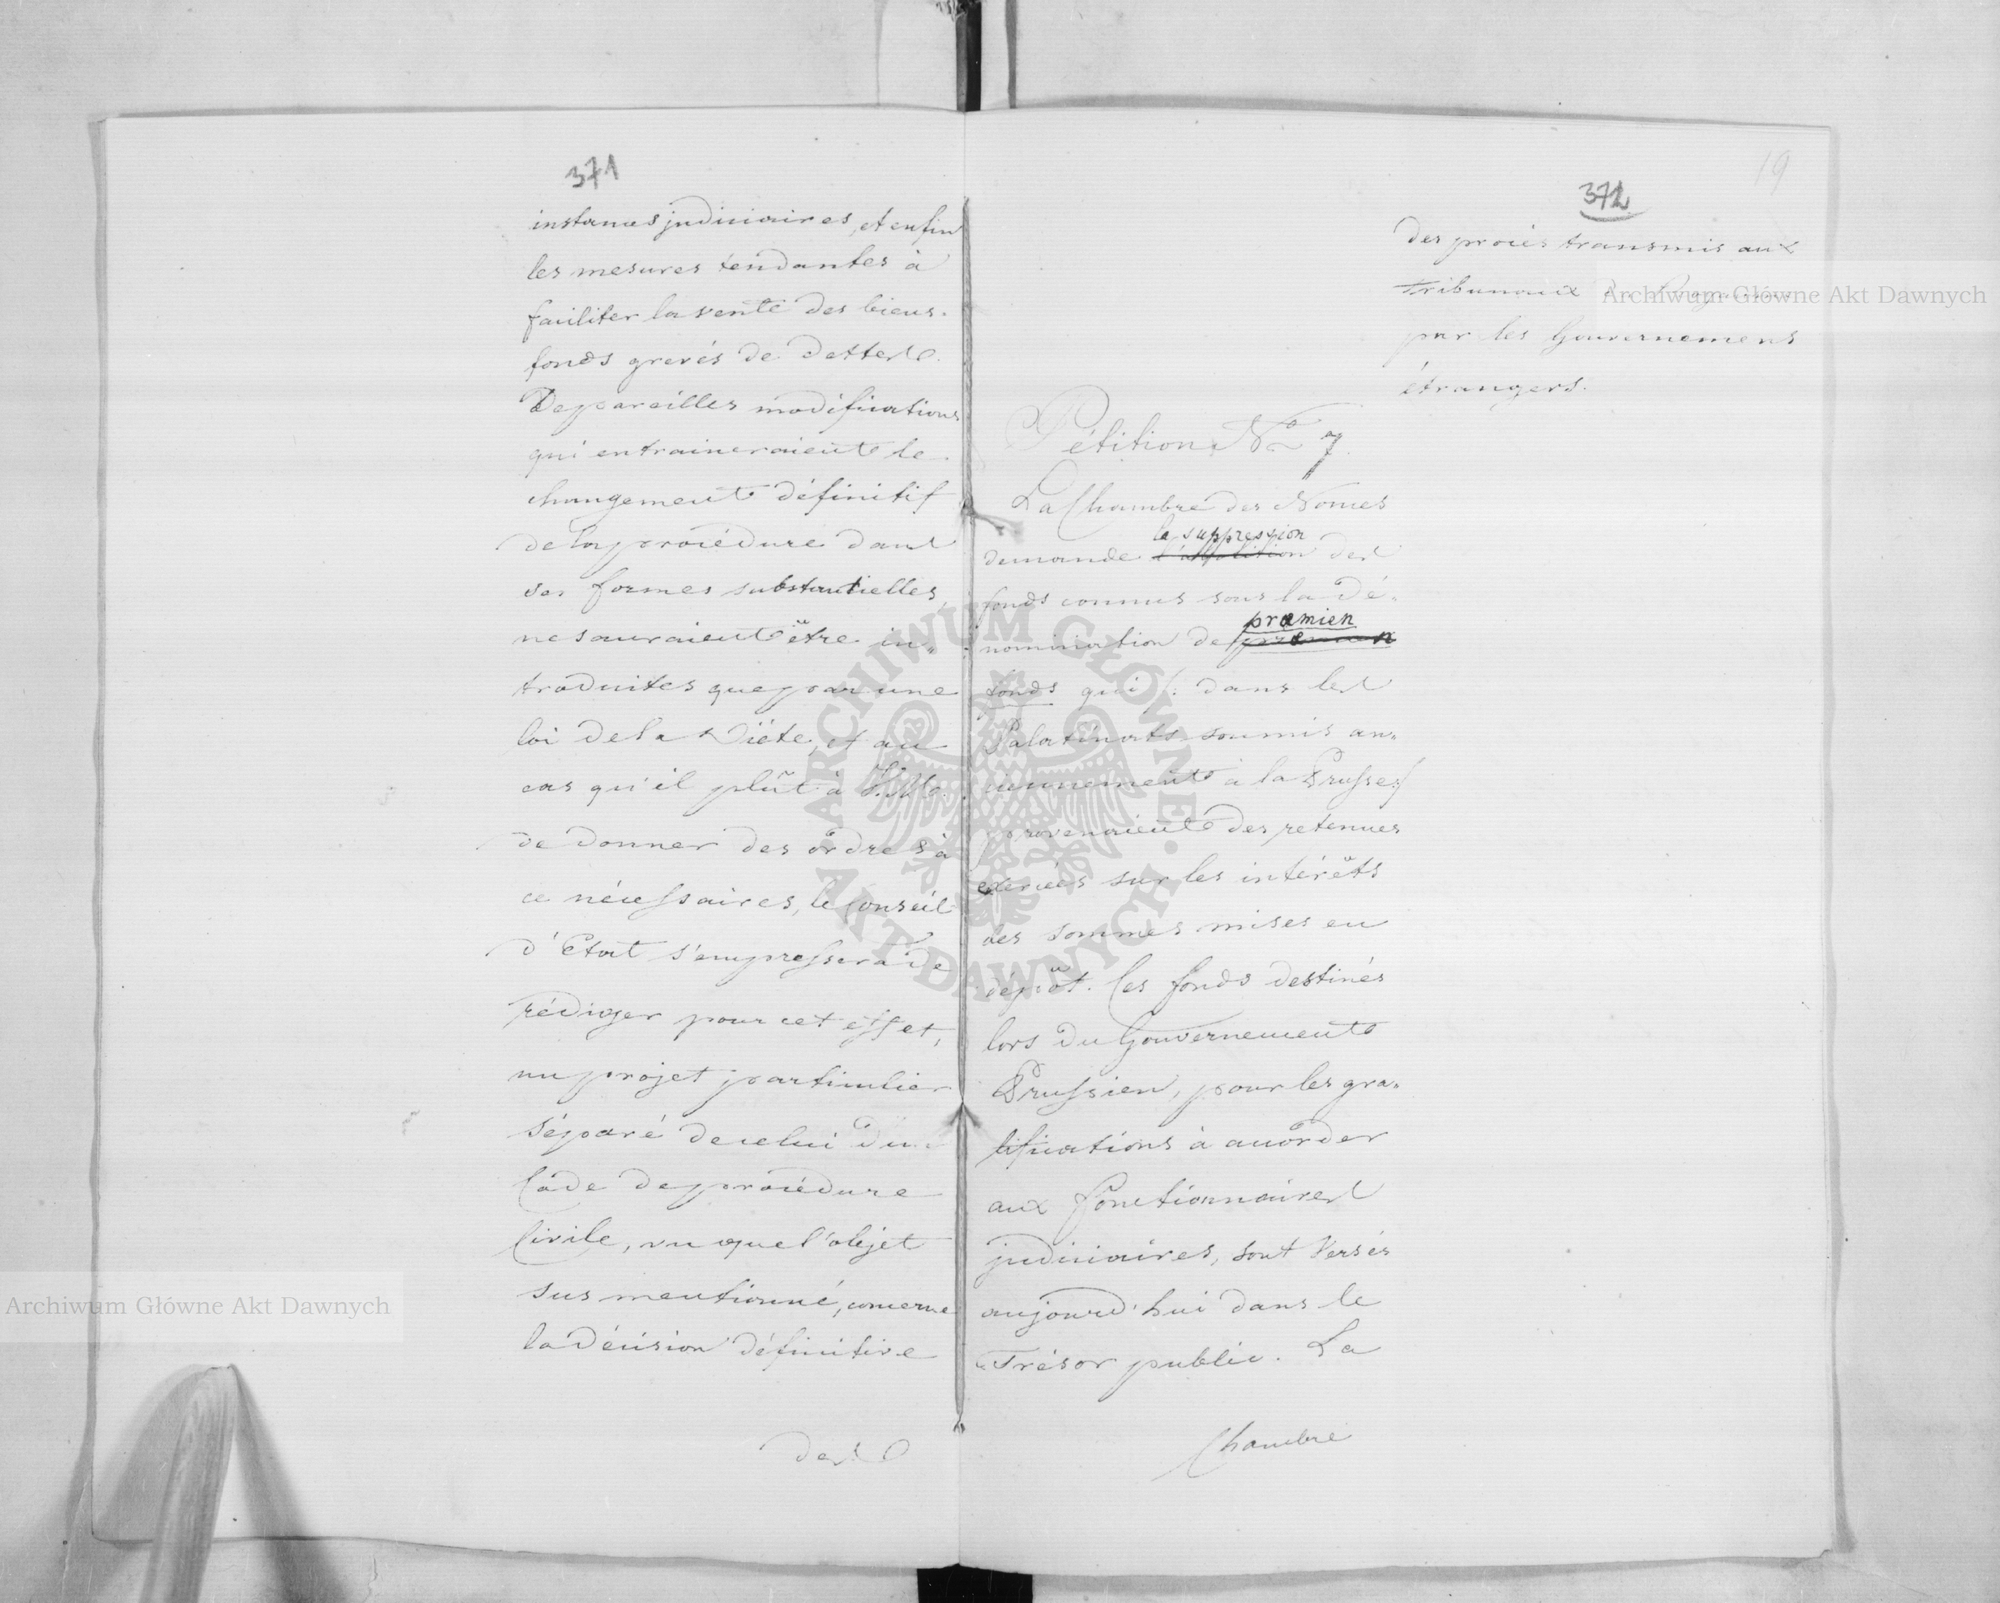 371
instances judiciaires, et enfin
les mesures tendantes à
faciliter la vente des biens-
fonds grevés de dettes.
De pareilles modifications
qui entraineraient le
changement définitif
de la procédure dans
ses formes substantielles,
ne sauraient être in„
troduites que par une
loi de la Diète, et au
cas qu'il plût à V.M.
de donner des ordres à
ce nécessaires, le Conseil
d'Etat s'empressera de
rédiger pour cet effet,
un projet particulier
séparé de celui du
Code de procédure
Civile, vu que l'objet
sus mentionné, concerne
la décision définitive
des
19
372
des procès transmis aux
tribunaux du Royaume
par les Gouvernemens
étrangers.
Pétition No 7.
La Chambre des Nonces
la suppression
demande l'abolition des
fonds connus sous la dé„
præmien
nomination de
fonds qui (: dans les
Palatinats soumis an„
ciennement à la Prusse :)
provenaient des retenues
exercées sur les intérêts
des sommes mises en
dépôt. Ces fonds destinés
lors du Gouvernement
Prussien, pour les gra„
tifications à accorder
aux fonctionnaires
judiciaires, sont versés
aujourd'hui dans le
Trésor public. La
Chambre
Archiwum Główne Akt Dawnych
Archiwum Główne Akt Dawnych
ARCHIWUM GŁÓWNE · AKT DAWNYCH ·